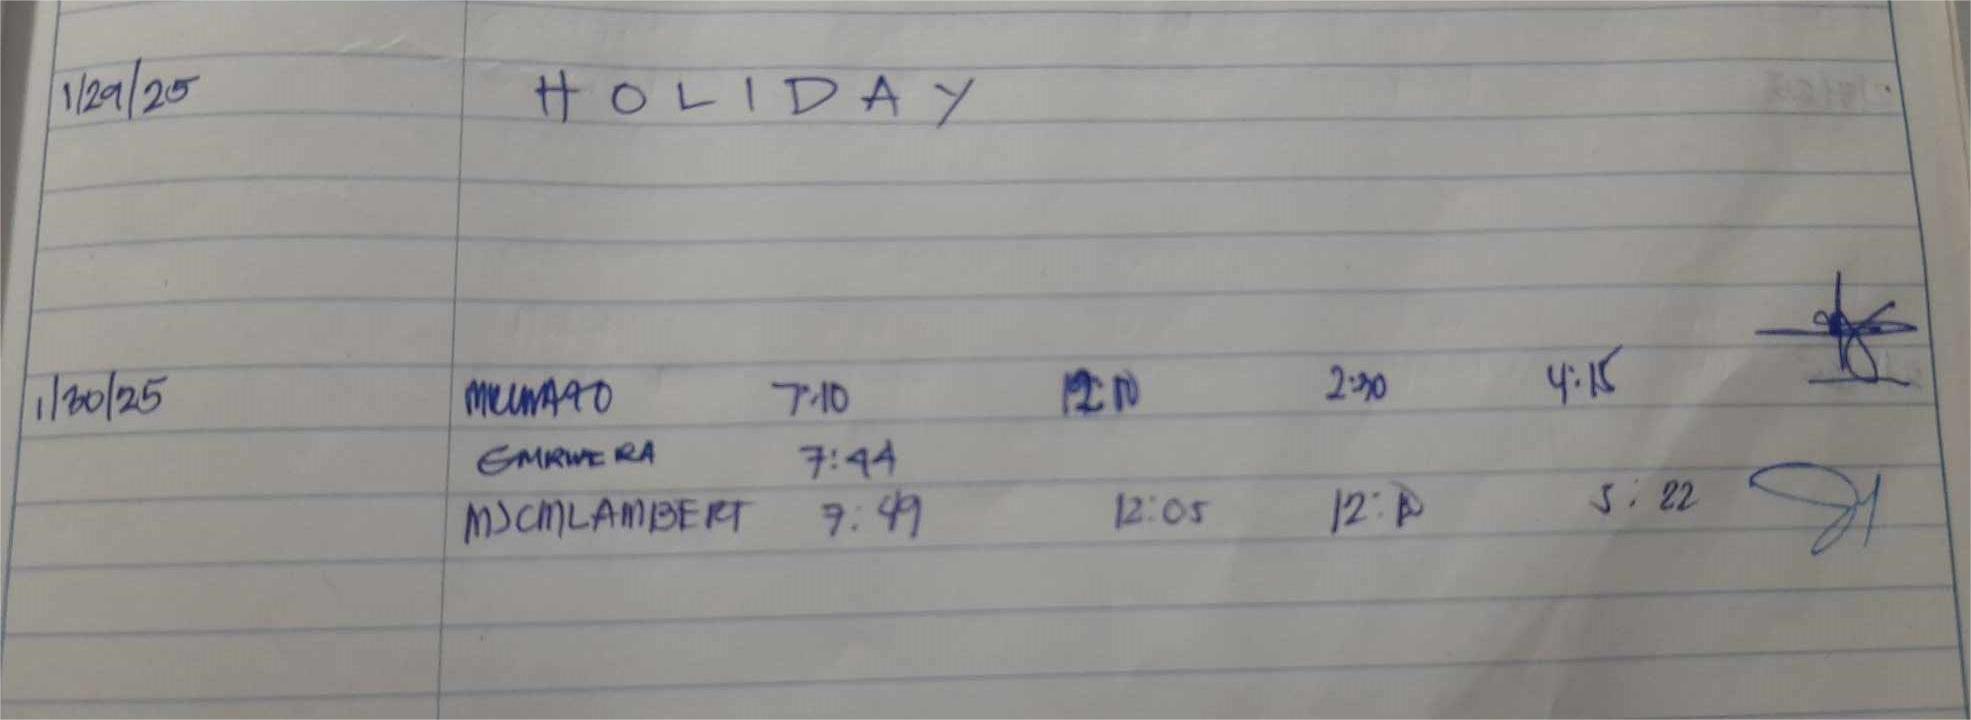 1/29/25 HOLIDAY
1/30/25 7:10 12:10 2:30 4:15
EMRIVERA 7:44
MJCMLAMBERT 7:49 12:05 5:22